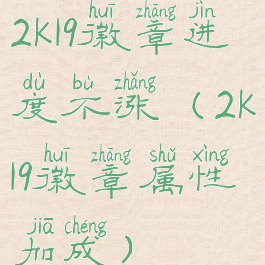 huī zhāng jìn
2K19徽章进
dù bù zhǎng
度不涨（2K
huī zhāng shǔ xìng
19徽章属性
jiā chéng
加成）